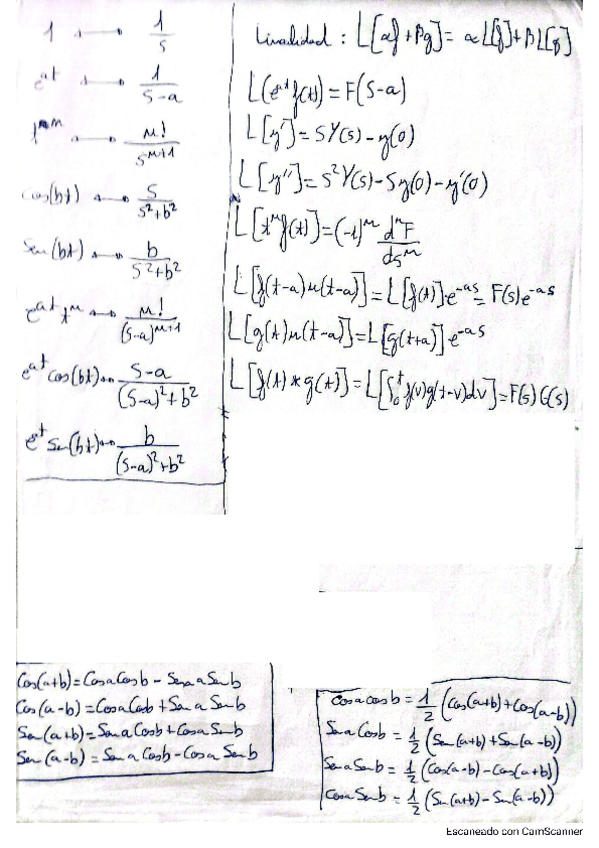 1 ⟷ 1/s
e^at ⟷ 1/(s-a)
t^n ⟷ n!/s^(n+1)
cos(bt) ⟷ s/(s²+b²)
Sen(bt) ⟷ b/(s²+b²)
e^at t^n ⟷ n!/(s-a)^(n+1)
e^at cos(bt) ⟷ (s-a)/((s-a)²+b²)
e^at Sen(bt) ⟷ b/((s-a)²+b²)
Linealidad : L[αf + βg] = αL[f] + βL[g]
L(e^at f(t)) = F(s-a)
L[y'] = SY(s) - y(0)
L[y''] = S²Y(s) - Sy(0) - y'(0)
L[t^n f(t)] = (-1)^n d^nF/ds^n
L[f(t-a)u(t-a)] = L[f(t)]e^-as = F(s)e^-as
L[g(t)u(t-a)] = L[g(t+a)]e^-as
L[f(t)*g(t)] = L[∫₀^t f(v)g(t-v)dv] = F(s)G(s)
Cos(a+b) = Cosa Cosb - Sena Senb
Cos(a-b) = Cosa Cosb + Sena Senb
Sen(a+b) = Sena Cosb + Cosa Senb
Sen(a-b) = Sena Cosb - Cosa Senb
Cosa cosb = 1/2 (Cos(a+b) + Cos(a-b))
Sena Cosb = 1/2 (Sen(a+b) + Sen(a-b))
Sena Senb = 1/2 (Cos(a-b) - Cos(a+b))
Cosa Senb = 1/2 (Sen(a+b) - Sen(a-b))
Escaneado con CamScanner